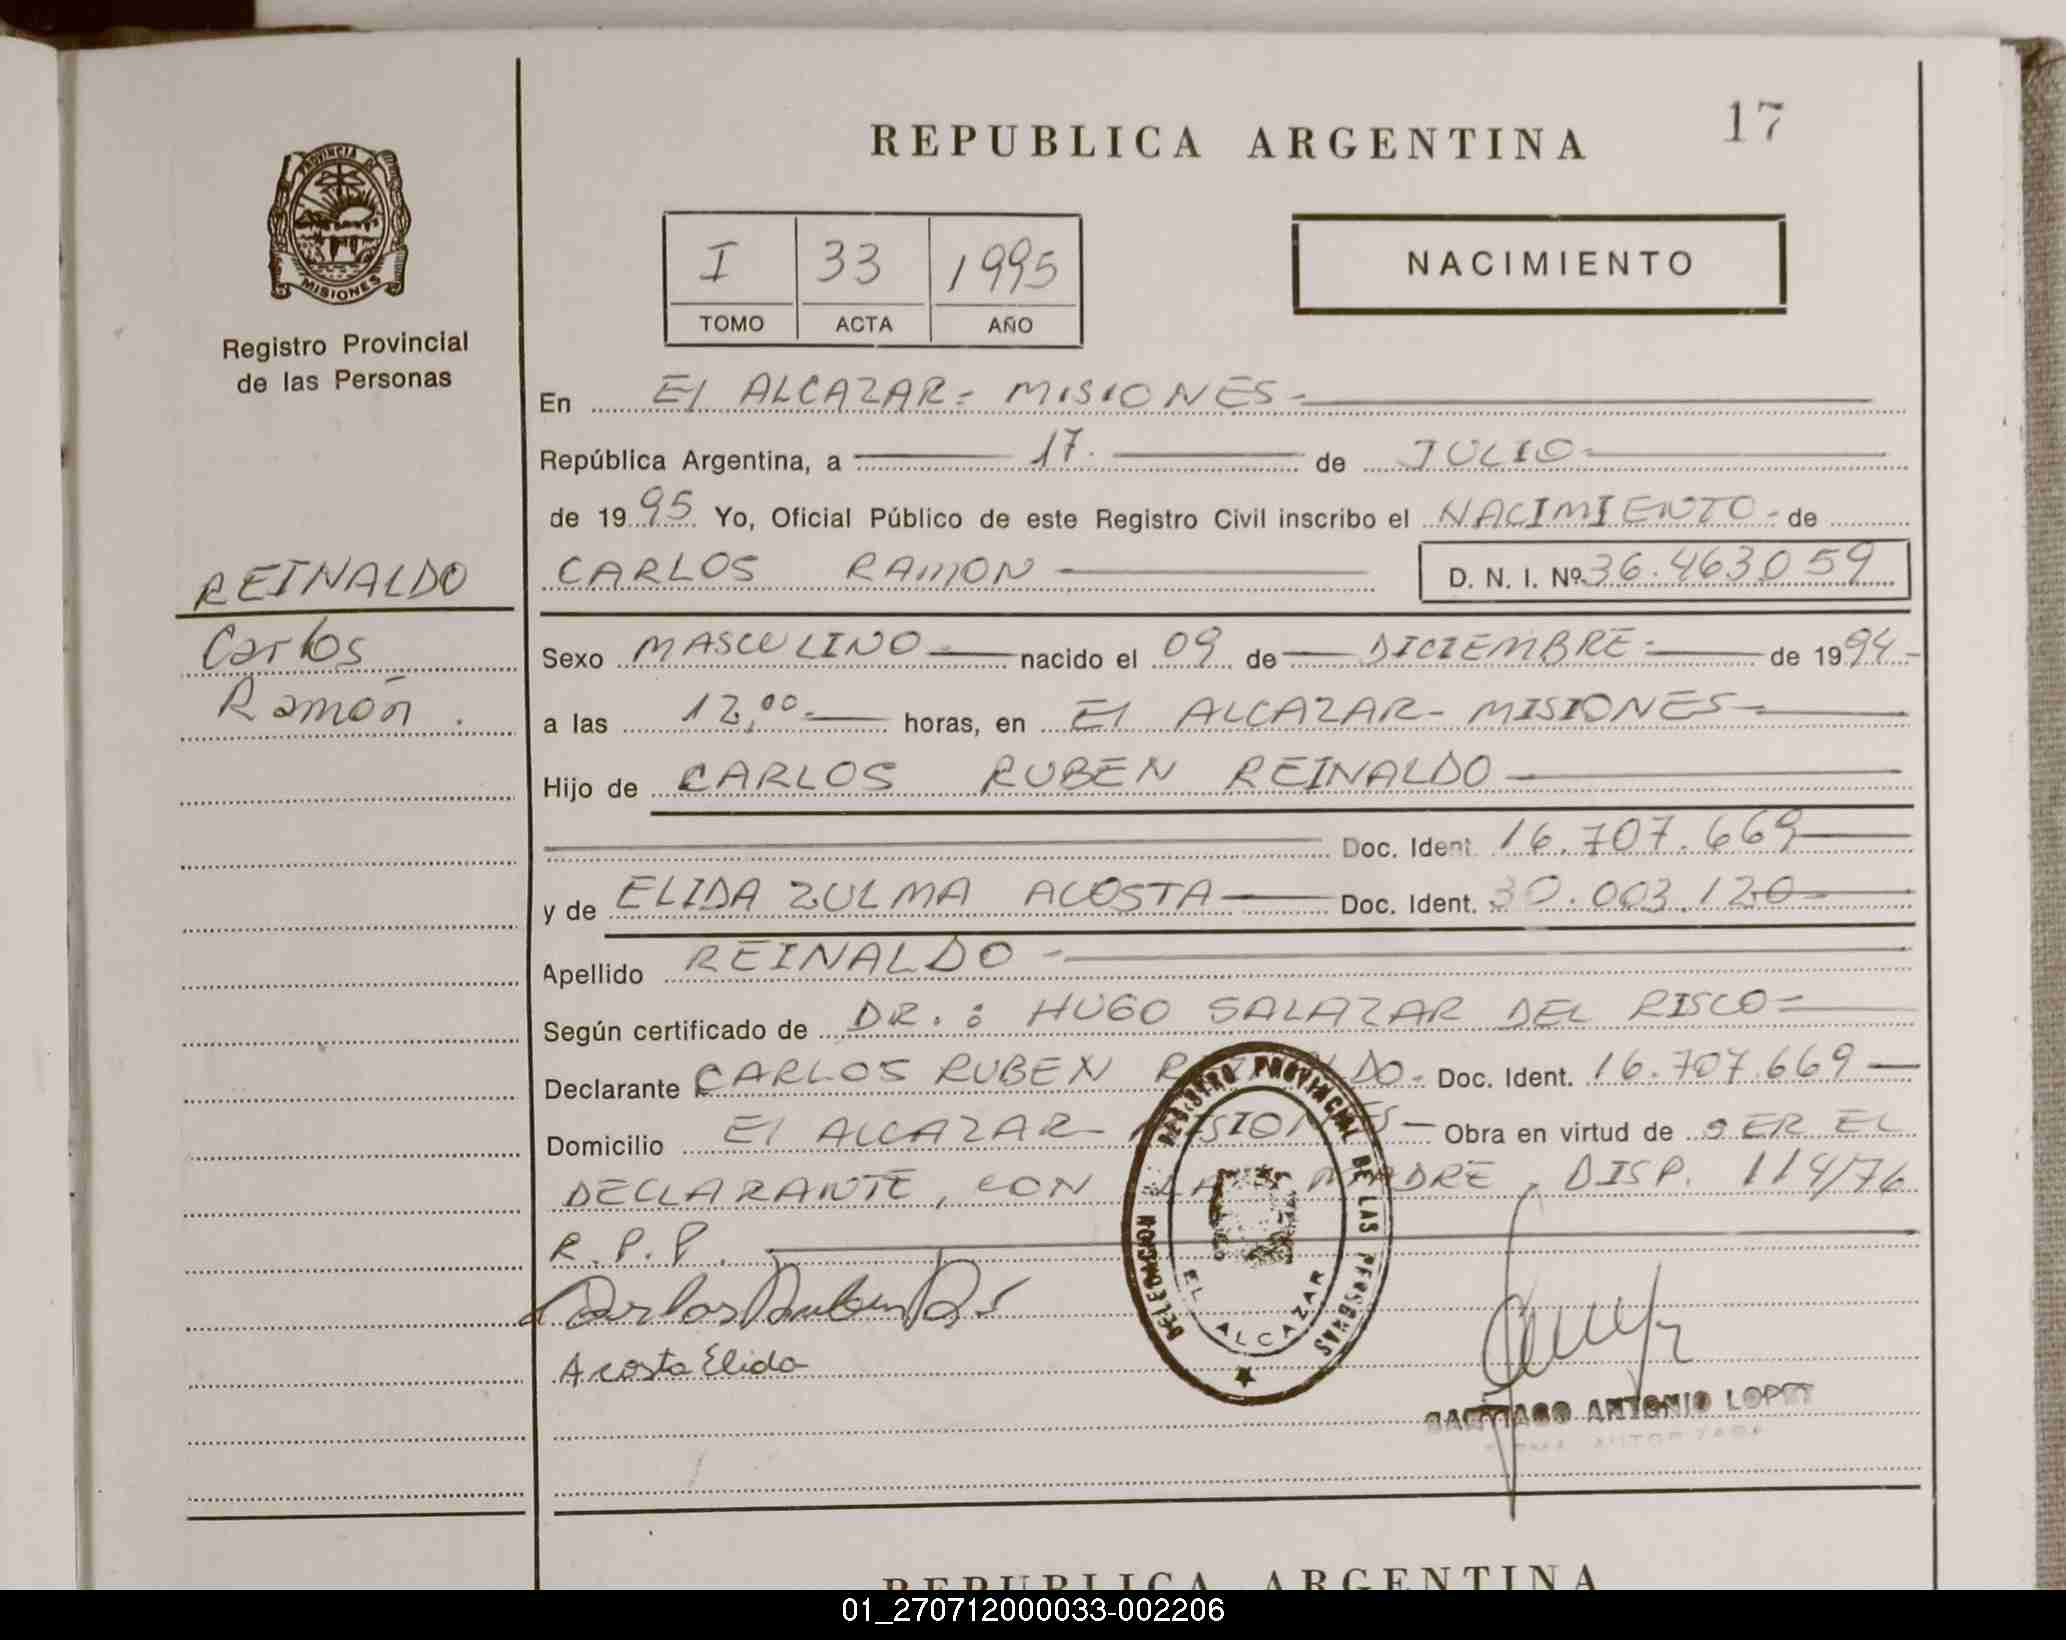 17
REPUBLICA ARGENTINA
PROVINCIA DE
MISIONES
Registro Provincial
de las Personas
I 33 1995
TOMO ACTA AÑO
NACIMIENTO
En El ALCAZAR - MISIONES -
República Argentina, a 17. de JULIO
de 1995 Yo, Oficial Público de este Registro Civil inscribo el NACIMIENTO - de
CARLOS RAMON D. N. I. Nº 36.463.059
REINALDO
Carlos
Ramón .
Sexo MASCULINO nacido el 09 de DICIEMBRE - de 1994 -
a las 12,00 - horas, en El ALCAZAR - MISIONES
Hijo de CARLOS RUBEN REINALDO
Doc. Ident. 16.707.669
y de ELIDA ZULMA ACOSTA Doc. Ident. 30.003.120
Apellido REINALDO -
Según certificado de DR. : HUGO SALAZAR DEL RISCO -
Declarante CARLOS RUBEN REINALDO - Doc. Ident. 16.707.669
Domicilio El ALCAZAR - MISIONES Obra en virtud de SER EL
DECLARANTE, CON LA MADRE, DISP. 114/76
R.P.P.
Carlos Ruben
Acosta Elida
REGISTRO PROVINCIAL DE LAS PERSONAS
DELEGACION
EL ALCAZAR
SANTIAGO ANTONIO LOPEZ
FIRMA AUTORIZADA
REPUBLICA ARGENTINA
01_270712000033-002206